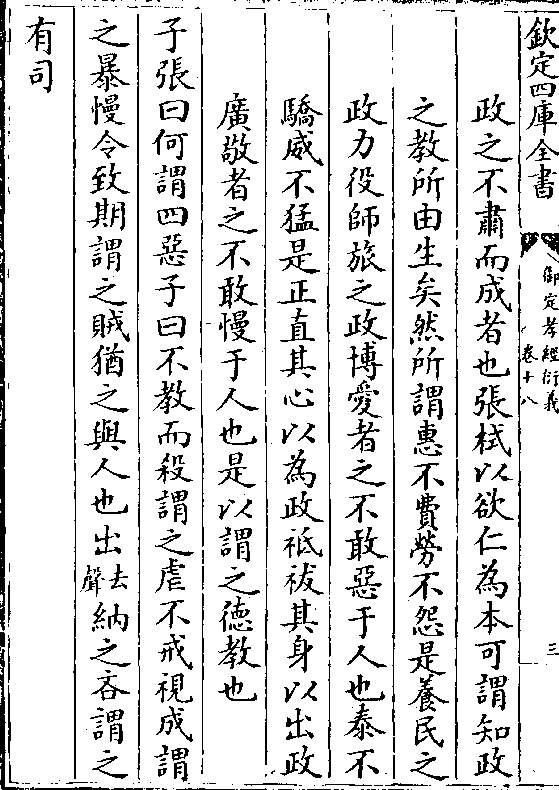 欽定四庫全書
御定孝經衍義
卷十八
三
政之不肅而成者也張栻以欲仁為本可謂知政
之教所由生矣然所謂惠不費勞不怨是養民之
政力役師旅之政博愛者之不敢惡于人也泰不
驕威不猛是正直其心以為政祗祓其身以出政
廣敬者之不敢慢于人也是以謂之德教也
子張曰何謂四惡子曰不教而殺謂之虐不戒視成謂
之暴慢令致期謂之賊猶之與人也出去聲納之吝謂之
有司